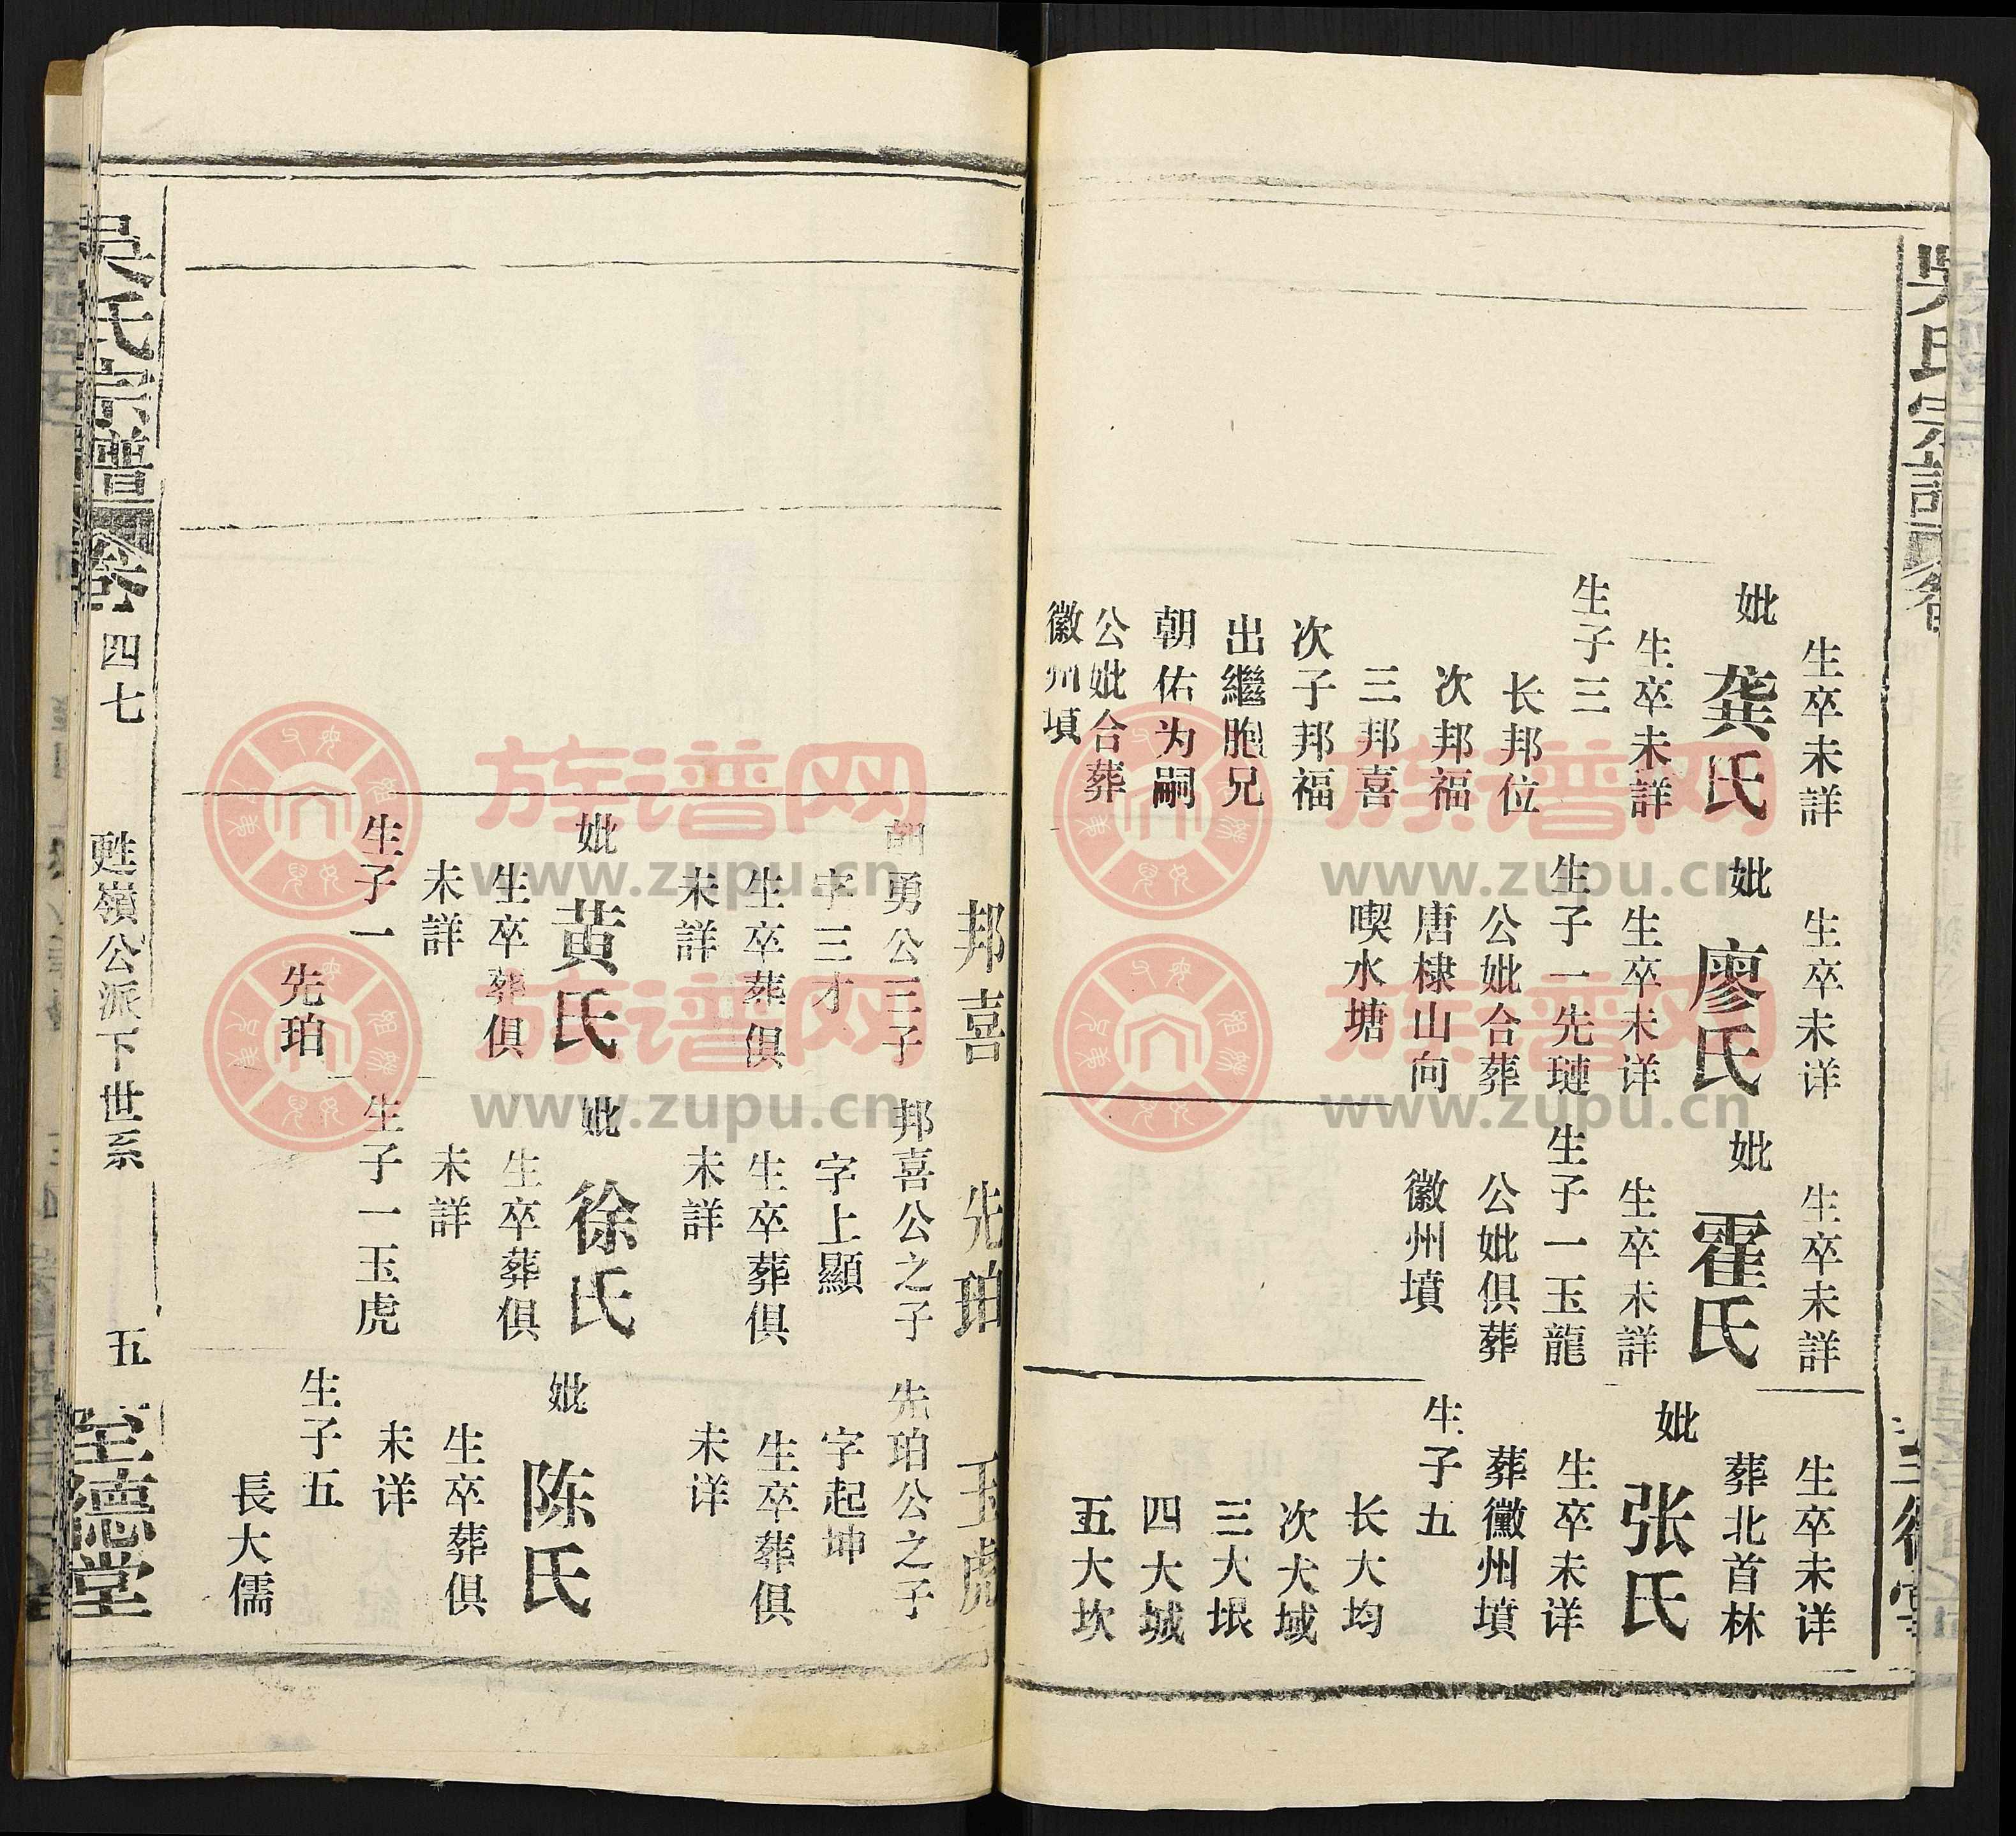 生卒未詳
妣 龔氏
生卒未詳
生子三
长邦位
次邦福
三邦喜
次子邦福
出繼胞兄
朝佑为嗣
公妣合葬
徽州墳
生卒未详
妣 廖氏
生卒未详
生子一先璉
公妣合葬
唐棣山向
喫水塘
生卒未詳
妣 霍氏
生卒未詳
生子一玉龍
公妣俱葬
徽州墳
生卒未详
葬北首林
妣 张氏
生卒未详
葬徽州墳
生子五
长大均
次大域
三大垠
四大城
五大坎
邦喜
勇公三子
字三才
生卒葬俱
未詳
妣 黄氏
生卒葬俱
未詳
生子一
先珀
先珀
邦喜公之子
字上顯
生卒葬俱
未詳
妣 徐氏
生卒葬俱
未詳
生子一玉虎
玉虎
先珀公之子
字起坤
生卒葬俱
未详
妣 陈氏
生卒葬俱
未详
生子五
長大儒
吴氏宗譜 卷四七 甦嶺公派下世系 五 至德堂
族谱网
www.zupu.cn
族谱网
www.zupu.cn
族谱网
www.zupu.cn
族谱网
www.zupu.cn